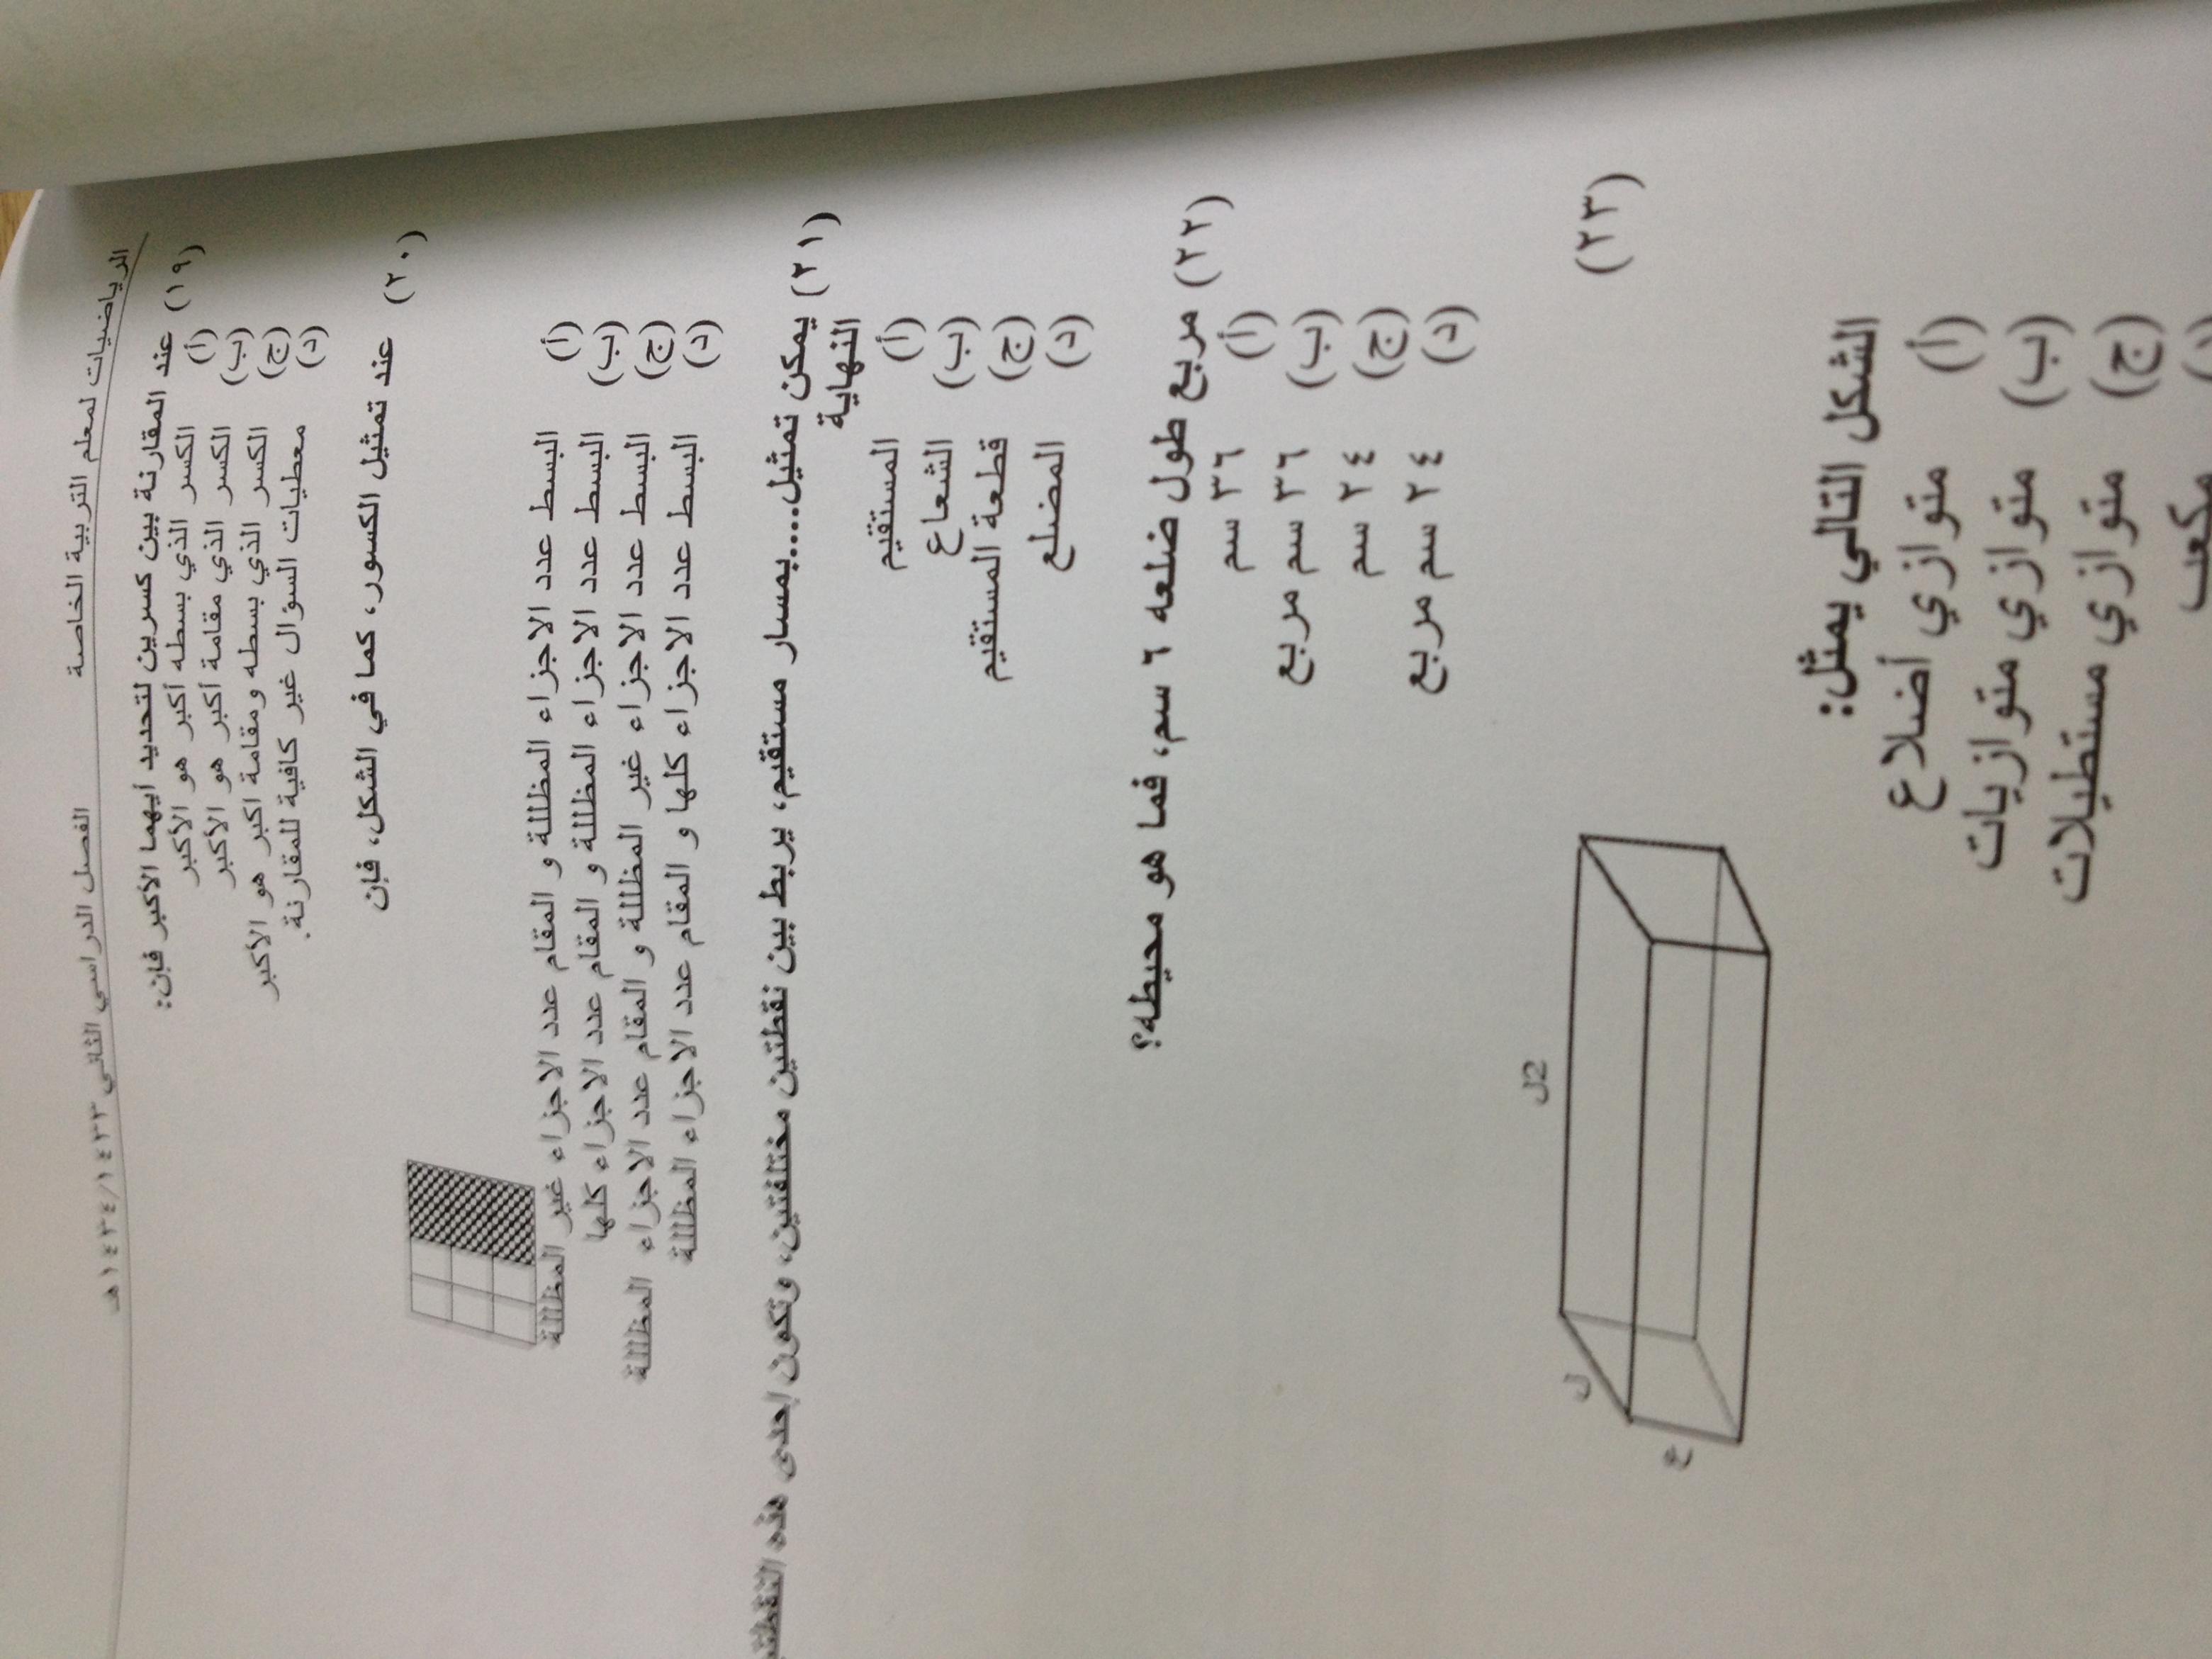 الرياضيات لمعلم التربية الخاصة الفصل الدراسي الثاني ١٤٣٤/١٤٣٣هـ
(١٩) عند المقارنة بين كسرين لتحديد أيهما الأكبر فإن:
(أ) الكسر الذي بسطه أكبر هو الأكبر
(ب) الكسر الذي مقامة أكبر هو الأكبر
(ج) الكسر الذي بسطه ومقامة اكبر هو الأكبر
(د) معطيات السؤال غير كافية للمقارنة.
(٢٠) عند تمثيل الكسور، كما في الشكل، فإن
(أ) البسط عدد الاجزاء المظللة و المقام عدد الاجزاء غير المظللة
(ب) البسط عدد الاجزاء المظللة و المقام عدد الاجزاء كلها
(ج) البسط عدد الاجزاء غير المظللة و المقام عدد الاجزاء المظللة
(د) البسط عدد الاجزاء كلها و المقام عدد الاجزاء المظللة
(٢١) يمكن تمثيل....بمسار مستقيم، يربط بين نقطتين مختلفتين، وتكون إحدى هذه
النهاية
(أ) المستقيم
(ب) الشعاع
(ج) قطعة المستقيم
(د) المضلع
(٢٢) مربع طول ضلعه ٦ سم، فما هو محيطه؟
(أ) ٣٦ سم
(ب) ٣٦ سم مربع
(ج) ٢٤ سم
(د) ٢٤ سم مربع
(٢٣)
2ل
ل
ع
الشكل التالي يمثل:
(أ) متوازي أضلاع
(ب) متوازي متوازيات
(ج) متوازي مستطيلات
مكعب